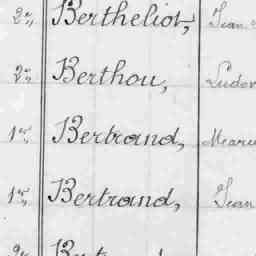 2e, Bertheliot, Jean
2e, Berthou, Ludov
1re, Bertrand, Marie
1re, Bertrand, Jean